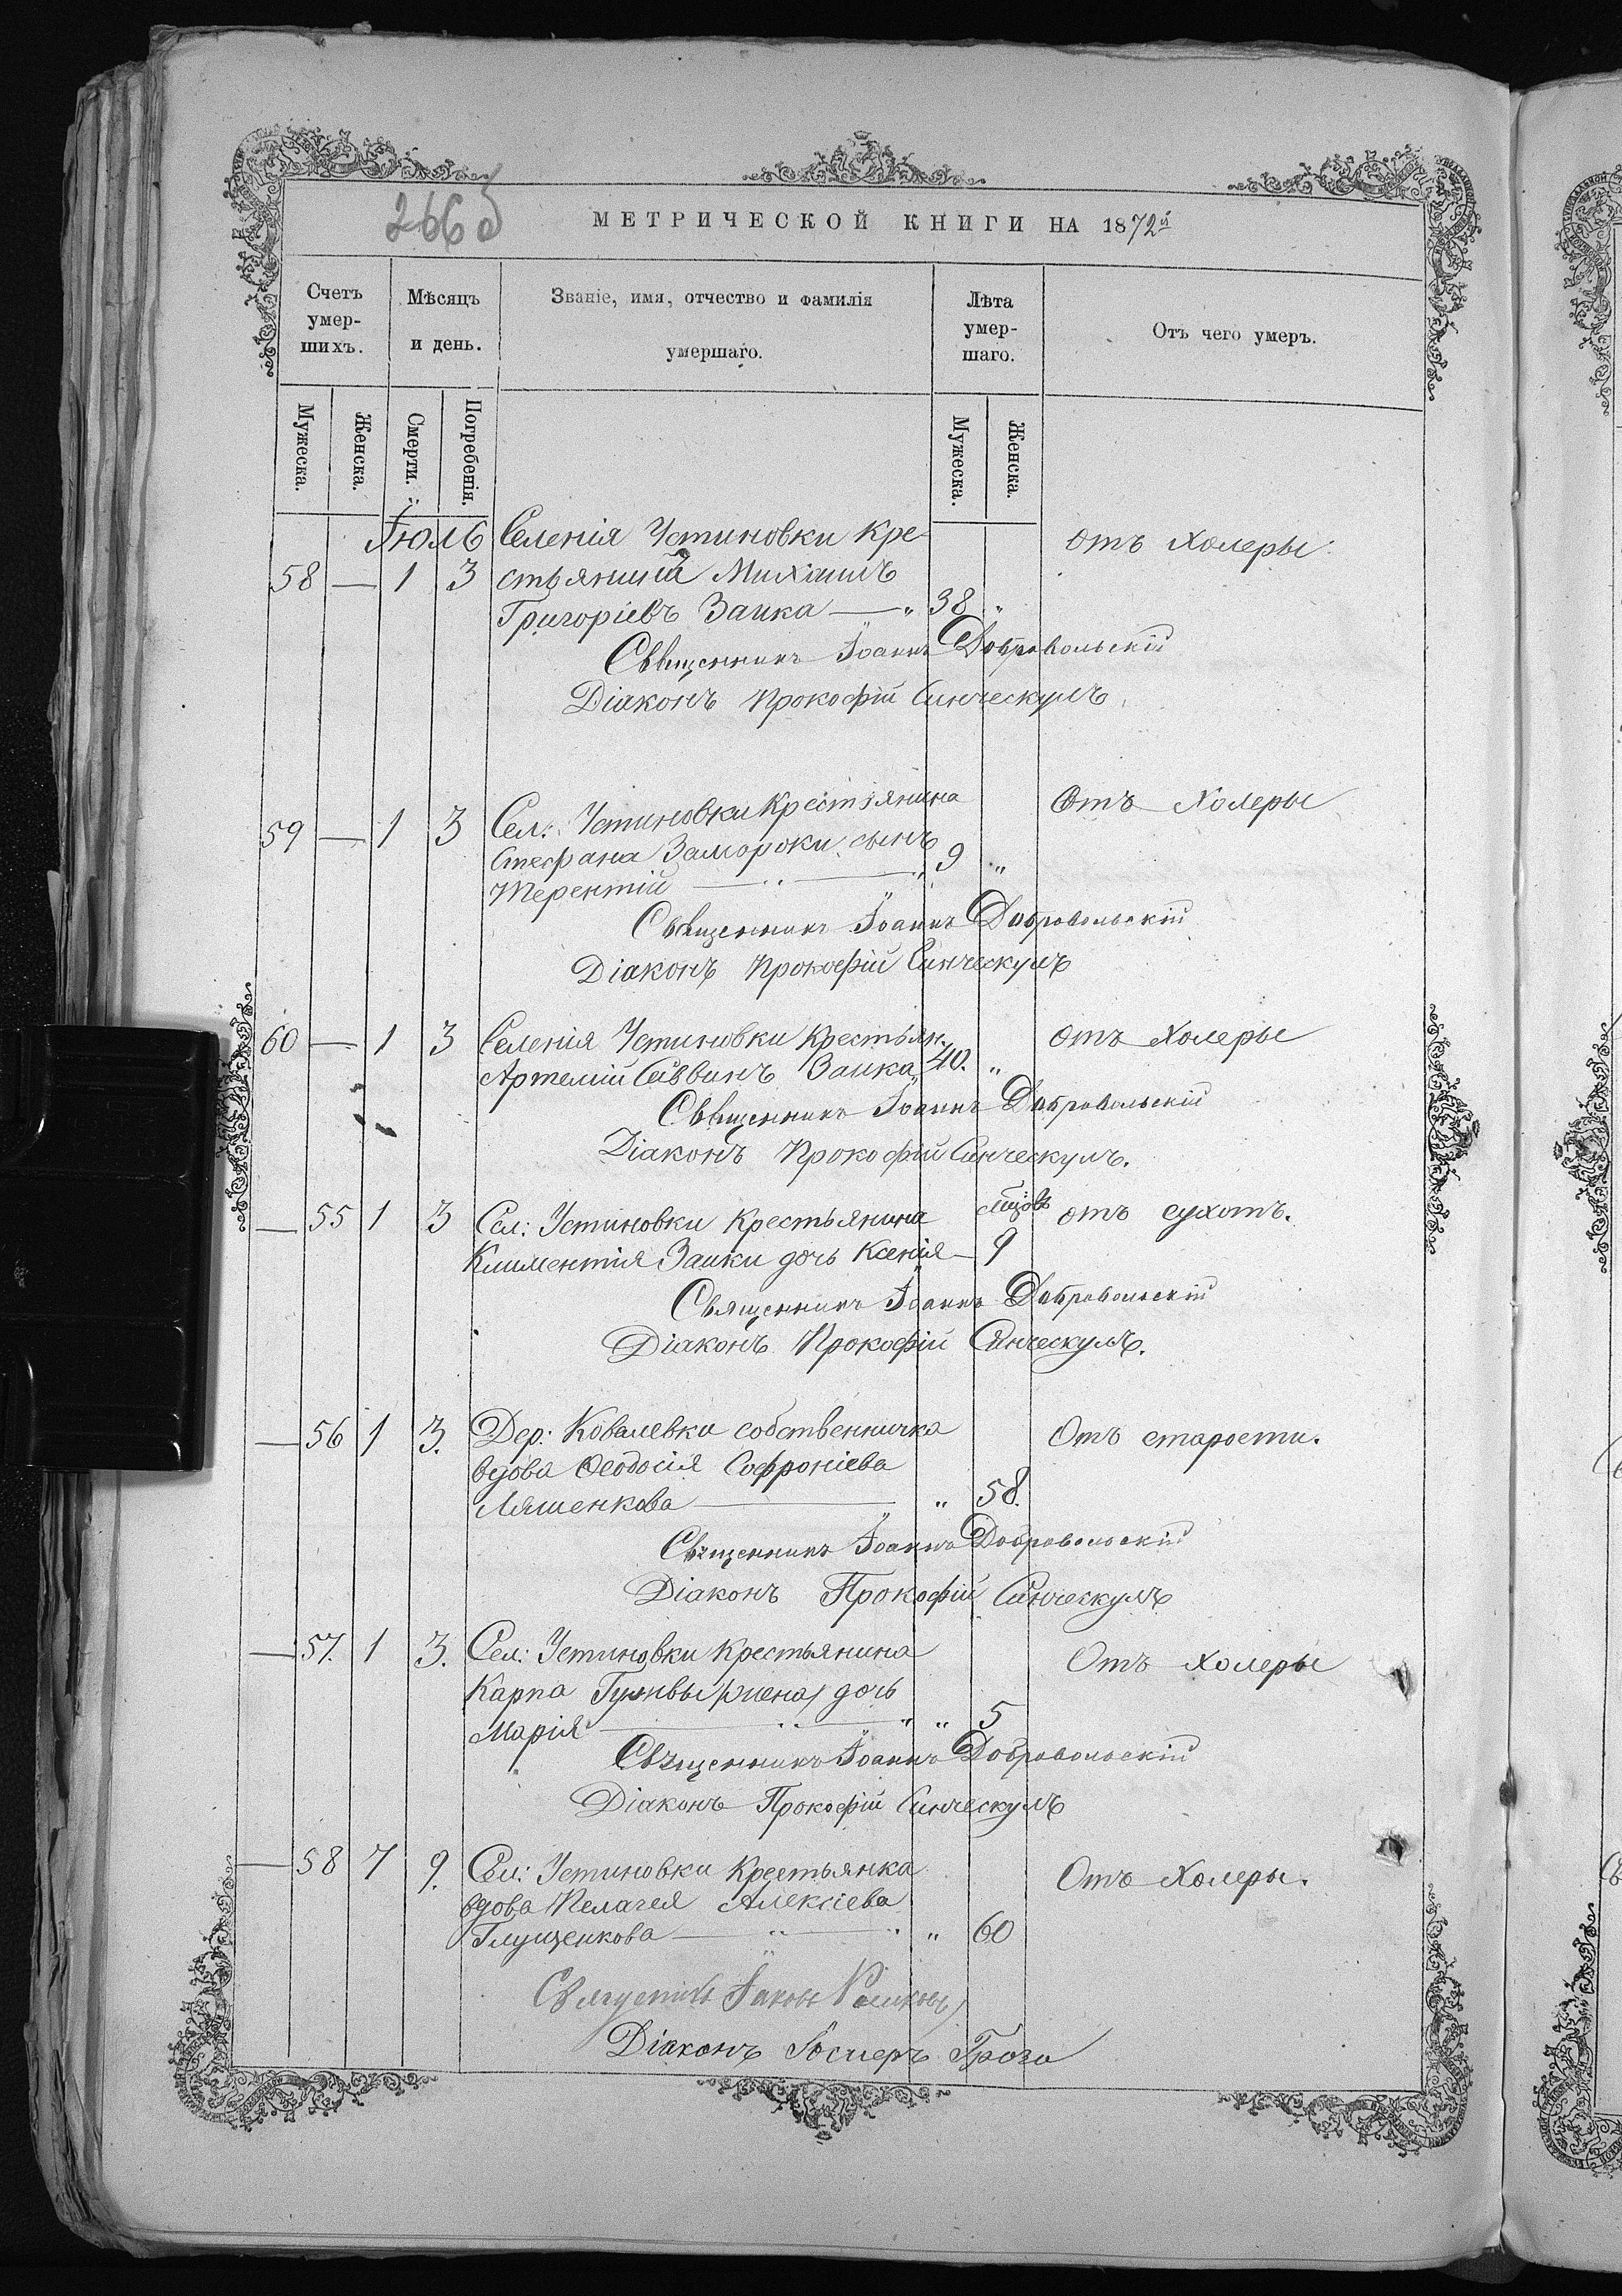 266 б
МЕТРИЧЕСКОЙ КНИГИ НА 1872й
Счетъ умер-шихъ.
Мѣсяцъ и день.
Званіе, имя, отчество и фамилія умершаго.
Лѣта умер-шаго.
Отъ чего умеръ.
Мужеска.
Женска.
Смерти.
Погребенія.
Мужеска.
Женска.
Іюль Селенія Устиновки кре- отъ холеры
58 — 1 3 стьянинъ Михаилъ
Григоріевъ Заика — „ 38 „
Священникъ Іоаннъ Добровольскій
Діаконъ Прокофій Синческулъ
59 — 1 3 Сел: Устиновки Крестьянина Отъ Холеры
Стефана Замороки сынъ
Терентій — „ 9 „
Священникъ Іоаннъ Добровольскій
Діаконъ Прокофій Синческулъ
60 — 1 3 Селенія Устиновки крестьян. отъ Холеры
Артемій Саввинъ Заика 40. „
Священникъ Іоаннъ Добровольскій
Діаконъ Прокофій Синческулъ.
— 55 1 3 Сел: Устиновки Крестьянина отъ сухотъ.
Климентія Заики дочь Ксенія — 9
Священникъ Іоаннъ Добровольскій
Діаконъ Прокофій Синческулъ.
— 56 1 3. Дер: Ковалевки собственничка Отъ старости.
вдова Ѳеодосія Софроніева
Ляшенкова — „ 58.
Священникъ Іоаннъ Добровольскій
Діаконъ Прокофій Синческулъ
— 57. 1 3. Сел: Устиновки Крестьянина Отъ холеры
Карпа дочь
Марія — „ „ 5
Священникъ Іоаннъ Добровольскій
Діаконъ Прокофій Синческулъ
— 58 7 9. Сел: Устиновки Крестьянка Отъ Холеры.
вдова Пелагея Алексіева
Глущенкова — „ 60
Іаковъ
Діаконъ